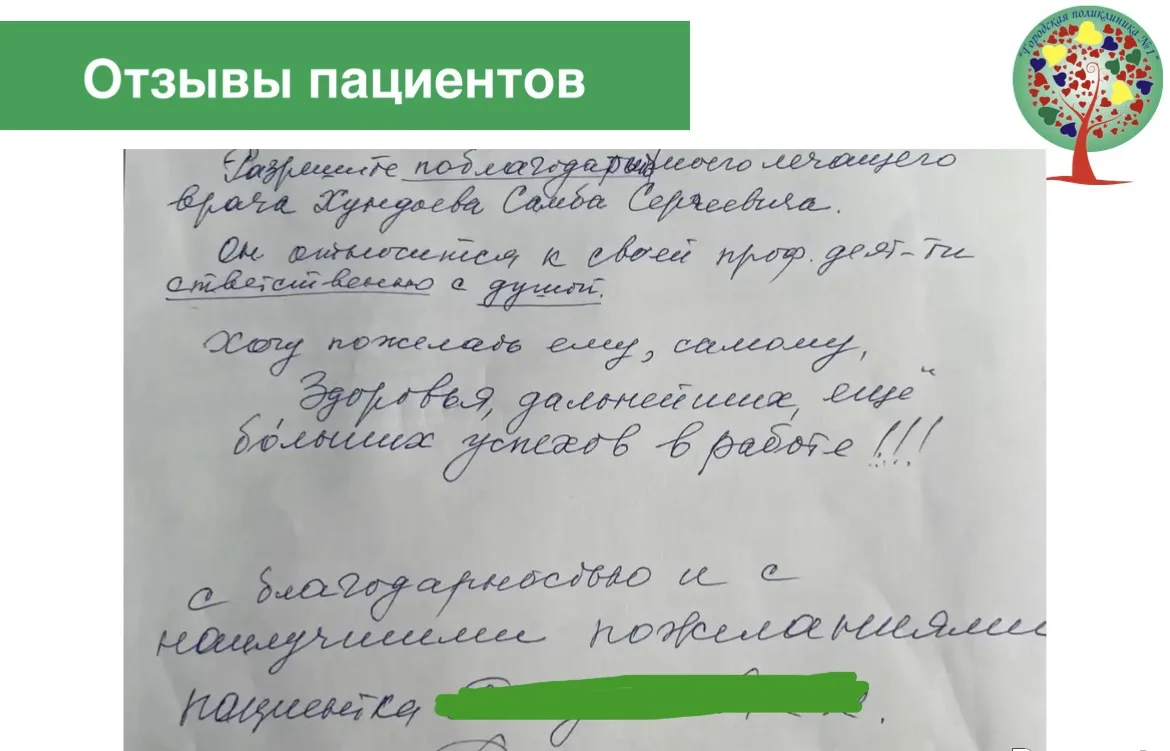 Отзывы пациентов
"Городская поликлиника №1"
Разрешите поблагодарить моего лечащего
врача Хундоева Самба Сергеевича.
Он относится к своей проф. деят-ти
ответственно с душой.
Хочу пожелать ему, самому,
Здоровья, дальнейших, ещё
бо́льших успехов в работе!!!
с благодарностью и с
наилучшими пожеланиями
пациентка